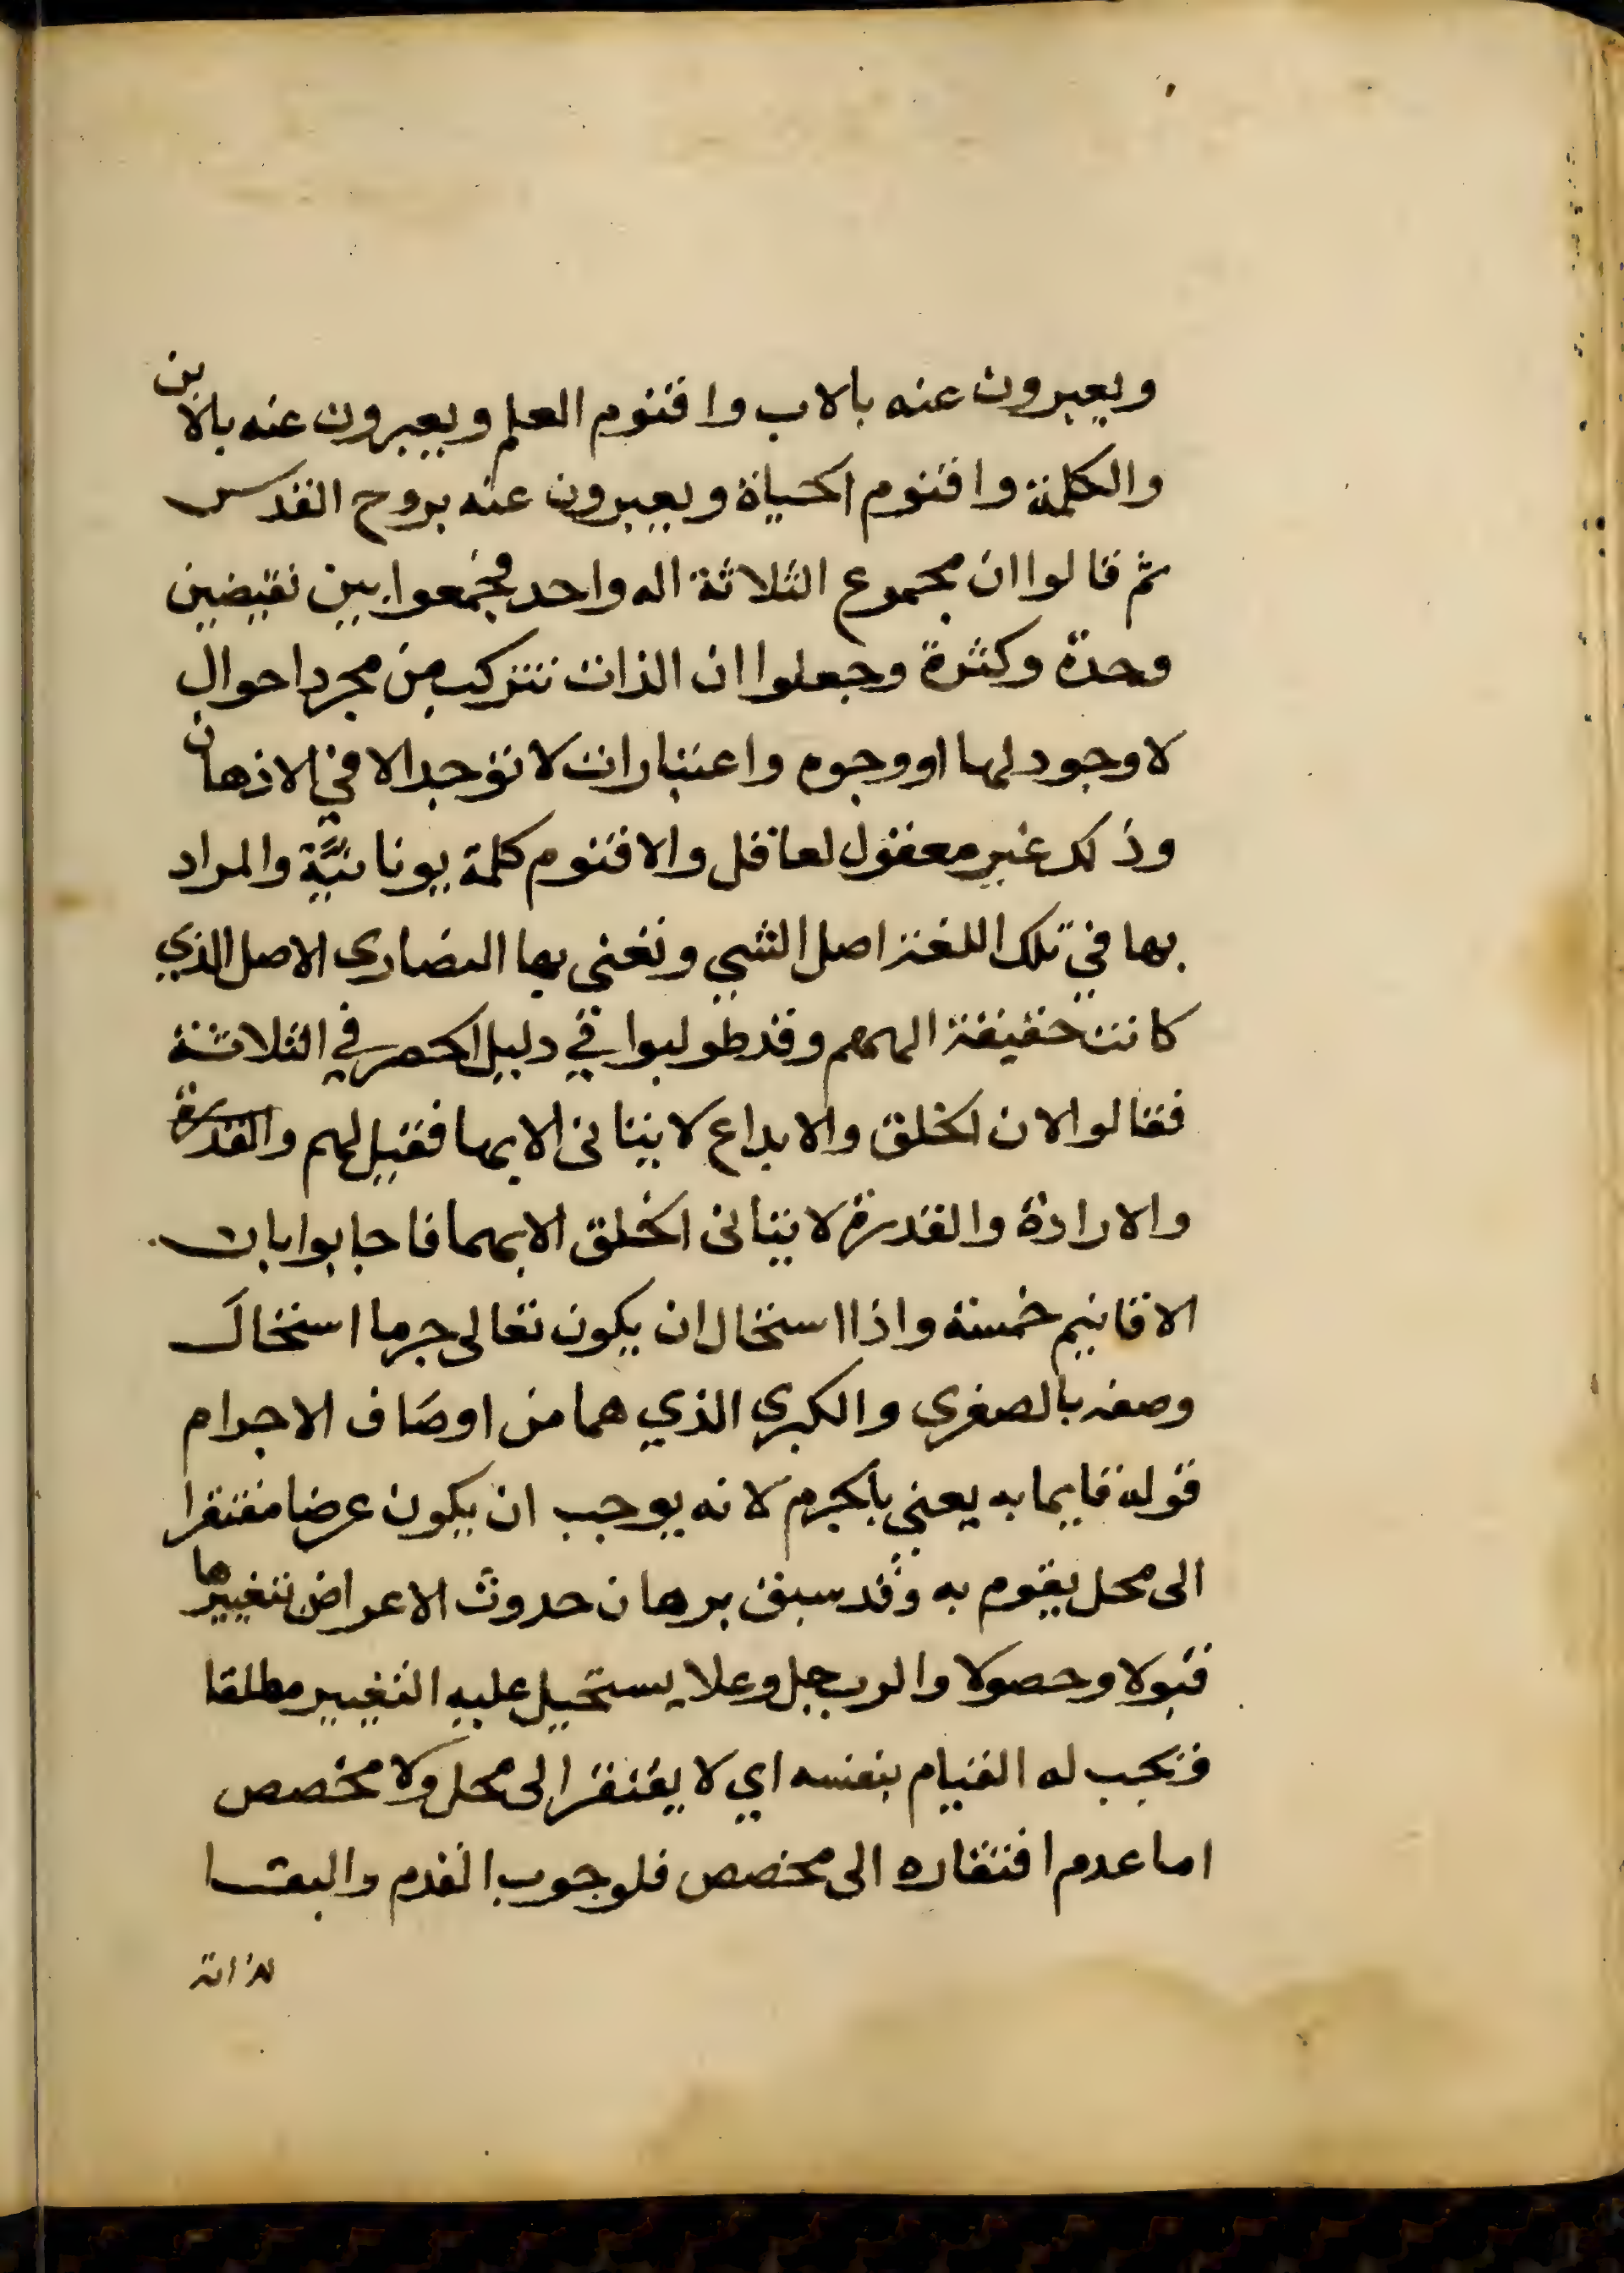 ويعبرون عنه بالاب واقنوم العلم ويعبرون عنه بالابن
والكلمة واقنوم الحياة ويعبرون عنه بروح القدس
ثم قالوا ان مجموع الثلاثة اله واحد فجمعوا بين نقيضين
وحدة وكثرة وجعلوا ان الذات تتركب من مجرد احوال
لا وجود لها او وجوه واعتبارات لا توجد الا في الاذهان
وذلك غير معقول لعاقل والاقنوم كلمة يونانيَّة والمراد
بها في تلك اللغة اصل الشي وتعني بها النصارى الاصل الذي
كانت حقيقة الههم وقد طولبوا في دليل الحصر في الثلاثة
فقالوا لان الخلق والابداع لا يتاتى الا بها فقيل لهم والقدرة
والارادة والقدرة لا يتاتى الخلق الا بهما فاجابوا بان
الاقانيم خمسة واذا استحال ان يكون تعالى جرما استحالَ
وصفه بالصغرى والكبرى الذي هما من اوصَاف الاجرام
قوله قايما به يعني بالجرم لانه يوجب ان يكون عرضا مفتقرا
الى محل يقوم به وقد سبق برهان حدوث الاعراض بتغييرها
قبولا وحصولا والرب جل وعلا يستحيل عليه التغيير مطلقا
فيجب له القيام بنفسه اي لا يفتقر الى محل ولا مخصص
اما عدم افتقاره الى مخصص فلوجوب القدم والبقا
لذاته